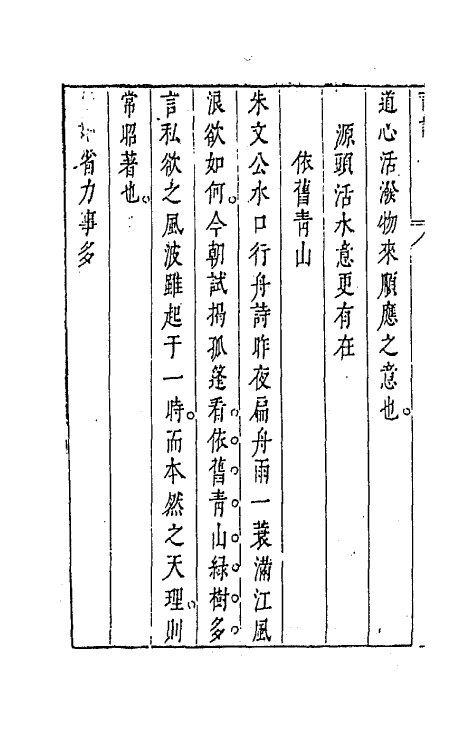 道心活潑物來順應之意也。
源頭活水意更有在
依舊青山
朱文公水口行舟詩昨夜扁舟雨一蓑滿江風
浪欲如何。今朝試揭孤篷看。依。舊。青。山。綠。樹。多。
言私欲之風波雖起于一時。而本然之天理。則
常昭著也。
省力事多